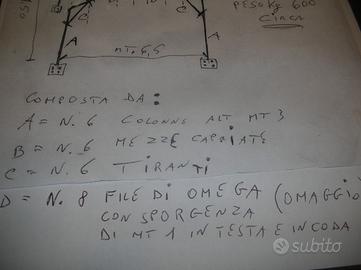 PESO KG 600
CIRCA
D
C
A
A
MT. 6,5
COMPOSTA DA:
A = N. 6 COLONNE ALT MT 3
B = N. 6 MEZZE CAPRIATE
C = N. 6 TIRANTI
D = N. 8 FILE DI OMEGA (OMAGGIO)
CON SPORGENZA
DI MT 1 IN TESTA E IN CODA
subito